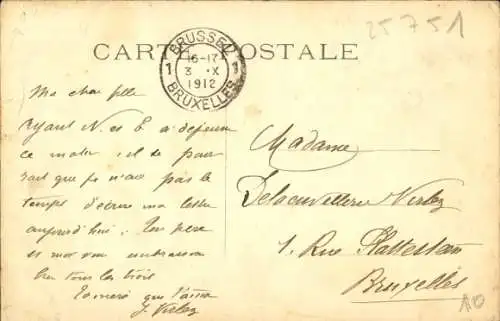 25751
CARTE POSTALE
BRUSSEL
16-17
1 3 X 1
1912
BRUXELLES
Ma chère fille
Ayant N. et E. à déjeuner
ce matin, il se pour
rait que je n'aie pas le
temps d'écrire ma lettre
aujourd'hui. Ton père
et moi vous embrassons
bien tous les trois
Ta mère que t'aime
J. Virlez
Madame
Delacuvellerie Virlez
1, Rue Plattesteen
Bruxelles